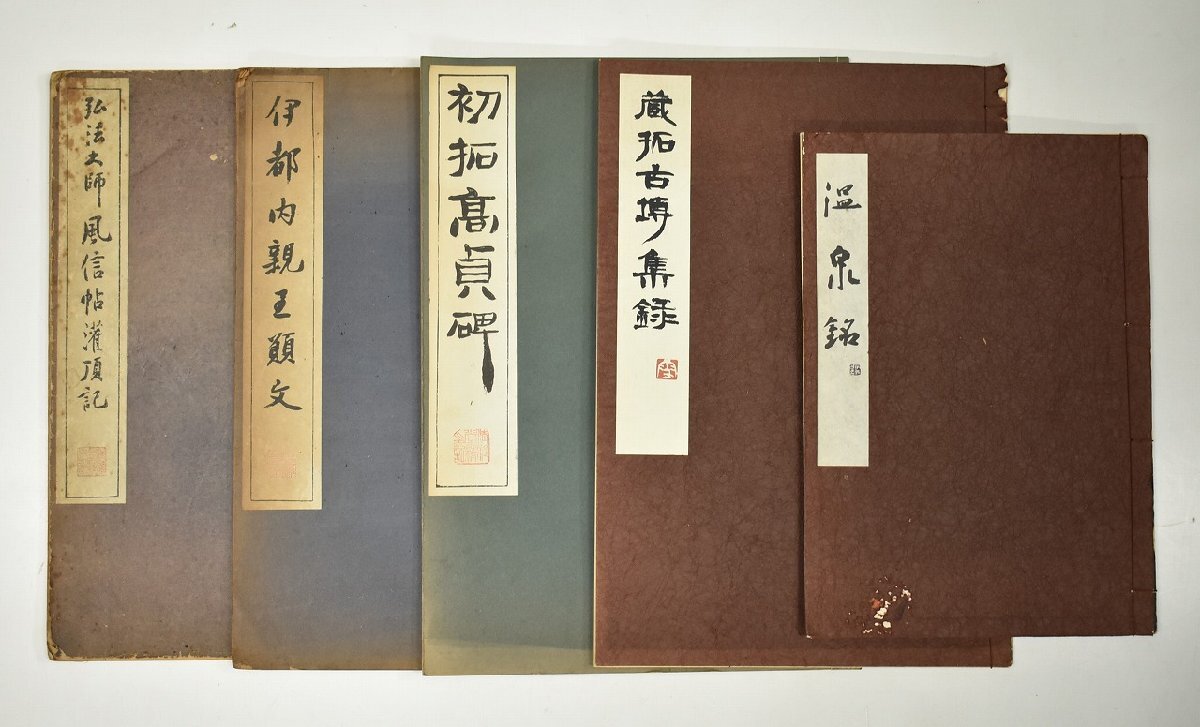 弘法大師風信帖灌頂記
伊都内親王願文
初拓高貞碑
蔵拓古塼集録
温泉銘